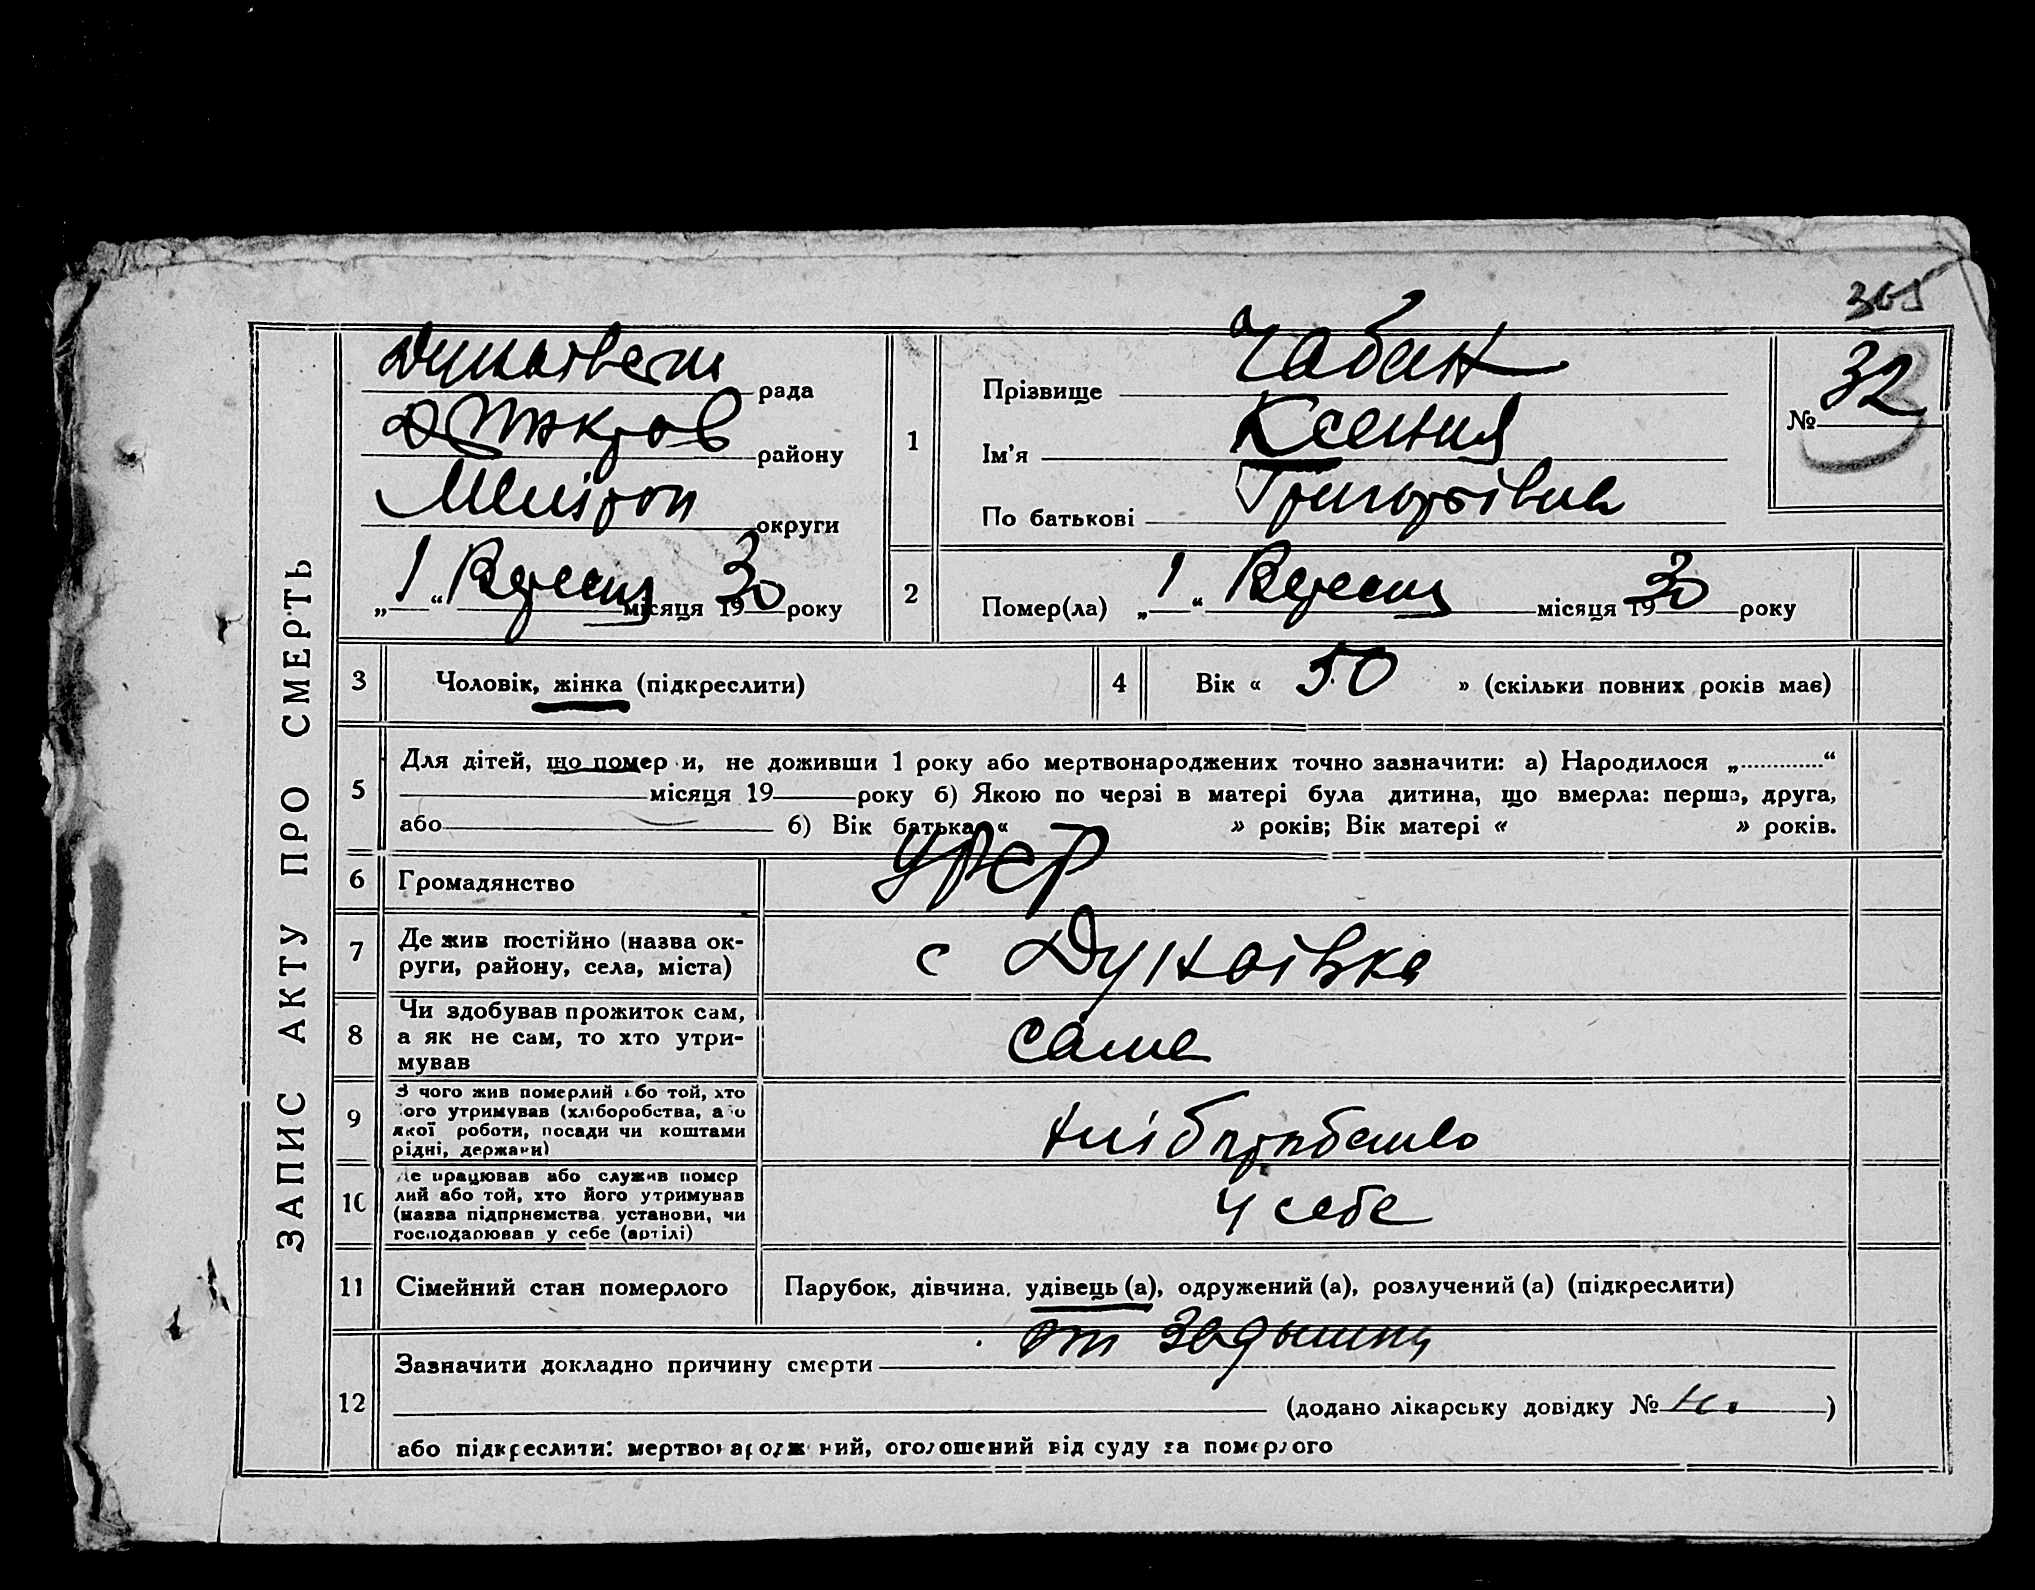 365
ЗАПИС АКТУ ПРО СМЕРТЬ
Дунаївська рада
Якимов району
Мелітоп округи
„1“ Вересня місяця 1930 року
1
Прізвище Чабан
Ім'я Ксения
По батькові Григорівна
№ 32
2
Помер(ла) „1“ Вересня місяця 1930 року
3
Чоловік, жінка (підкреслити)
4
Вік « 50 » (скільки повних років має)
5
Для дітей, що помер и, не доживши 1 року або мертвонароджених точно зазначити: а) Народилося „ “
місяця 19 року б) Якою по черзі в матері була дитина, що вмерла: перша, друга,
або б) Вік батька « » років; Вік матері « » років.
6
Громадянство
УРСР
7
Де жив постійно (назва ок-
руги, району, села, міста)
с Дунаївка
8
Чи здобував прожиток сам,
а як не сам, то хто утри-
мував
сама
9
З чого жив померлий або той, хто
його утримував (хліборобства, або
якої роботи, посади чи коштами
рідні, держави)
хліборобство
10
Де працював або служив помер
лий або той, хто його утримував
(назва підприємства, установи, чи
господарював у себе (артілі)
у себе
11
Сімейний стан померлого
Парубок, дівчина, удівець (а), одружений (а), розлучений (а) (підкреслити)
12
Зазначити докладно причину смерти от
(додано лікарську довідку № )
або підкреслити: мертвонароджений, оголошений від суду за померлого